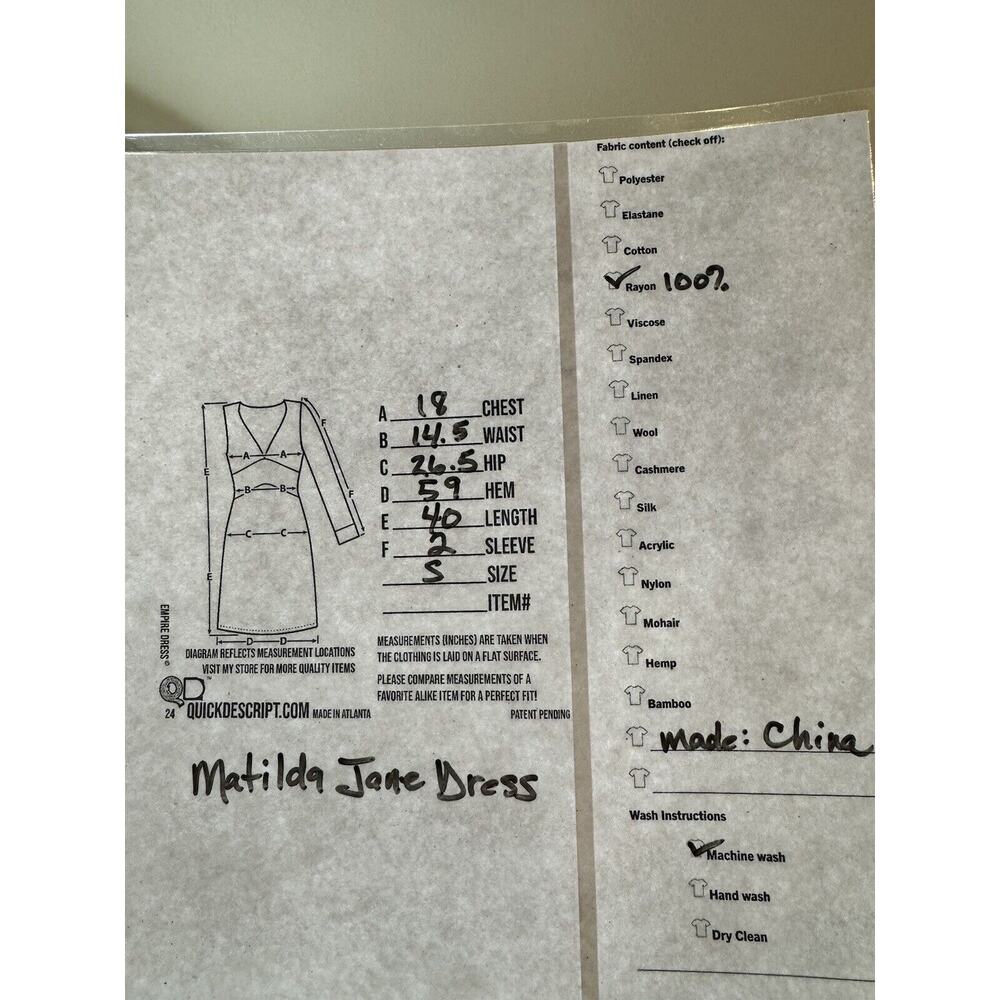 A 18 CHEST
B 14.5 WAIST
C 26.5 HIP
D 59 HEM
E 40 LENGTH
F 2 SLEEVE
S SIZE
ITEM#
A A
B B
C C
D D
E
E
F
F
EMPIRE DRESS ©
DIAGRAM REFLECTS MEASUREMENT LOCATIONS
VISIT MY STORE FOR MORE QUALITY ITEMS
QD™
24 QUICKDESCRIPT.COM MADE IN ATLANTA
MEASUREMENTS (INCHES) ARE TAKEN WHEN
THE CLOTHING IS LAID ON A FLAT SURFACE.
PLEASE COMPARE MEASUREMENTS OF A
FAVORITE ALIKE ITEM FOR A PERFECT FIT!
PATENT PENDING
Matilda Jane Dress
Fabric content (check off):
Polyester
Elastane
Cotton
Rayon 100%
Viscose
Spandex
Linen
Wool
Cashmere
Silk
Acrylic
Nylon
Mohair
Hemp
Bamboo
made: China
Wash Instructions
Machine wash
Hand wash
Dry Clean